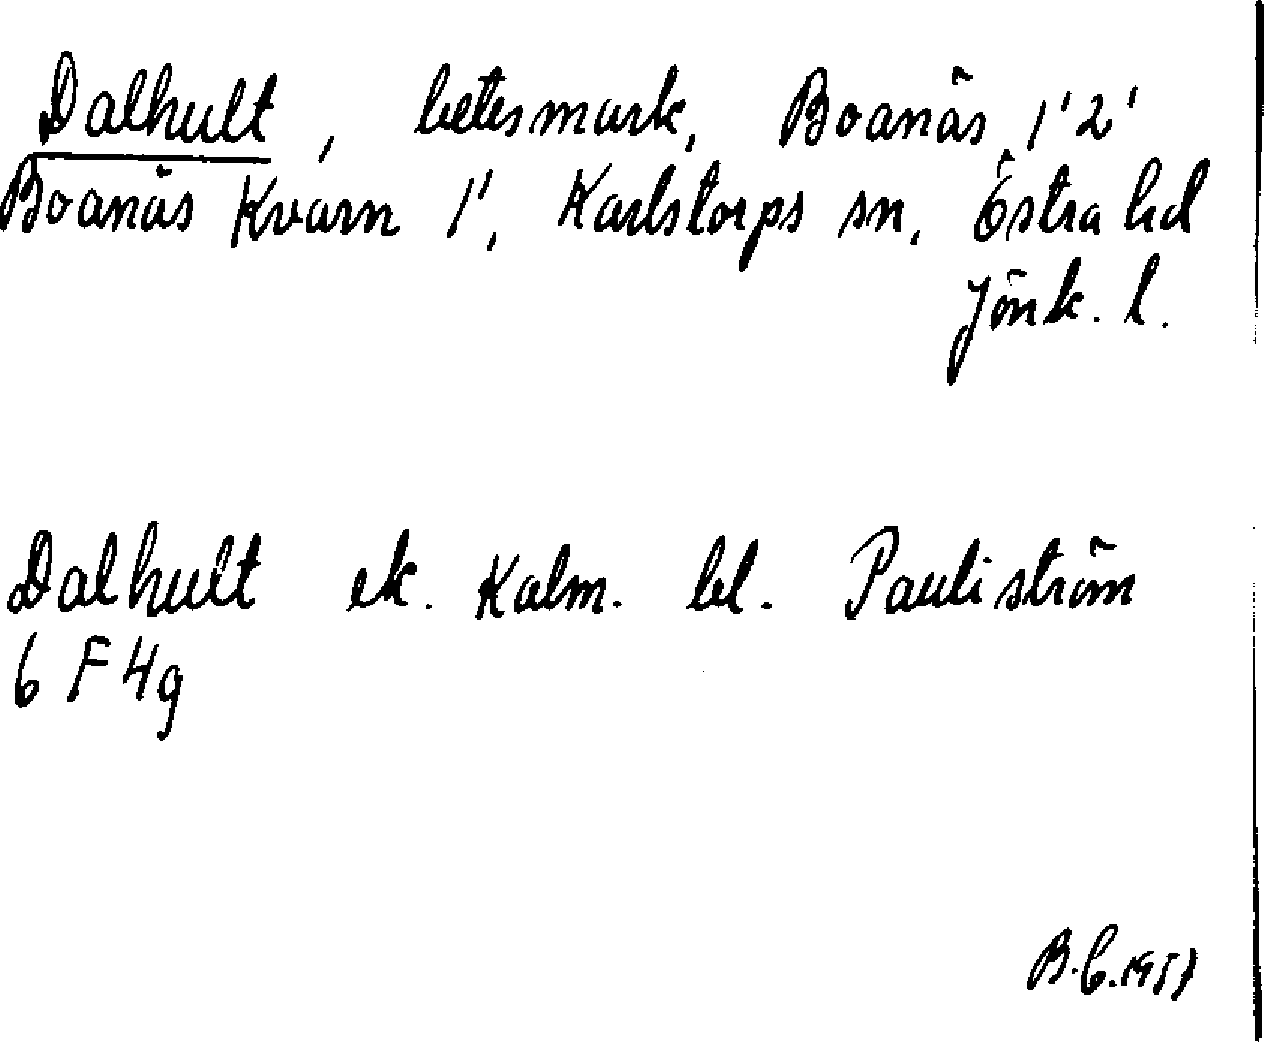 Dalhult, betesmark, Boanäs 1'2'
Boanäs Kvarn 1', Karlstorps sn, Östra hd
Jönk. l.
Dalhult ek. Kalm. bl. Pauliström
6 F 4g
B.C. 1957